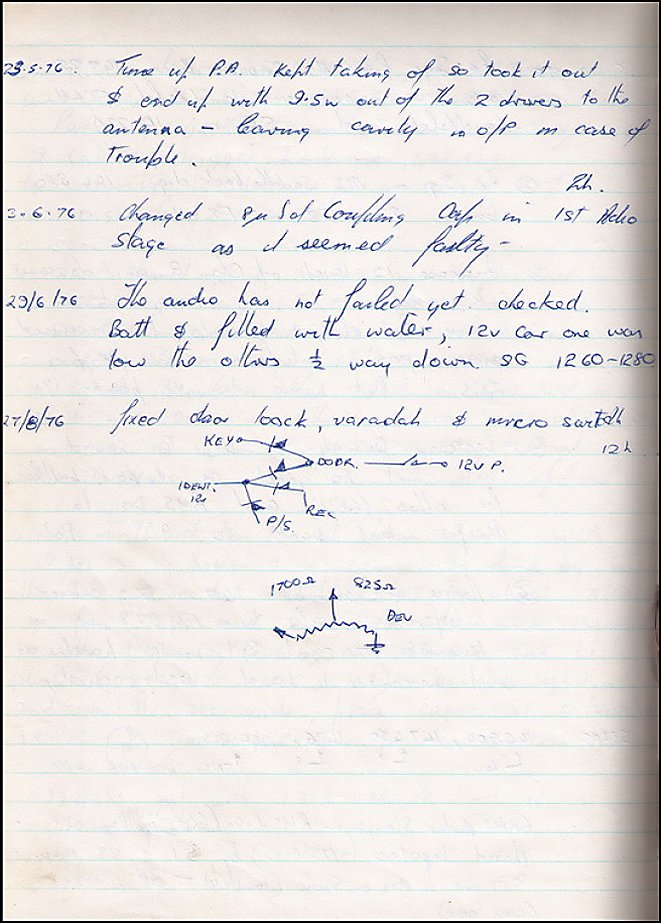 23.5.76. Tune up P.A. kept taking of so took it out
& end up with 9.5w out of the 2 drivers to the
antenna – leaving cavity in O/P in case of
Trouble.
2h.
3.6.76 changed 8µ Sol Coupling Cap in 1st Adio
stage as it seemed faulty –
29/6/76 The audio has not failed yet. checked.
Batt & filled with water, 12v car one was
low the others ½ way down. SG 1260–1280
27/8/76 fixed door loock, varadah & micro switch
12h
KEY
DOOR.
12V P.
IDENT.
12v
REC
P/S.
1700Ω 825Ω
DEV